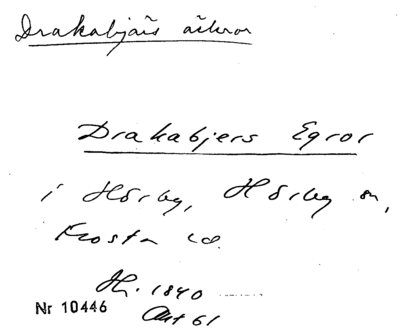 Drakabjärs åkrar
Drakabjers Egror
i Hörby, Hörby sn,
Frosta hd.
Hr. 1840
Akt 61
Nr 10446